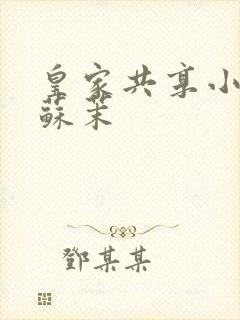 皇家共享小
蘇茉
鄧某某